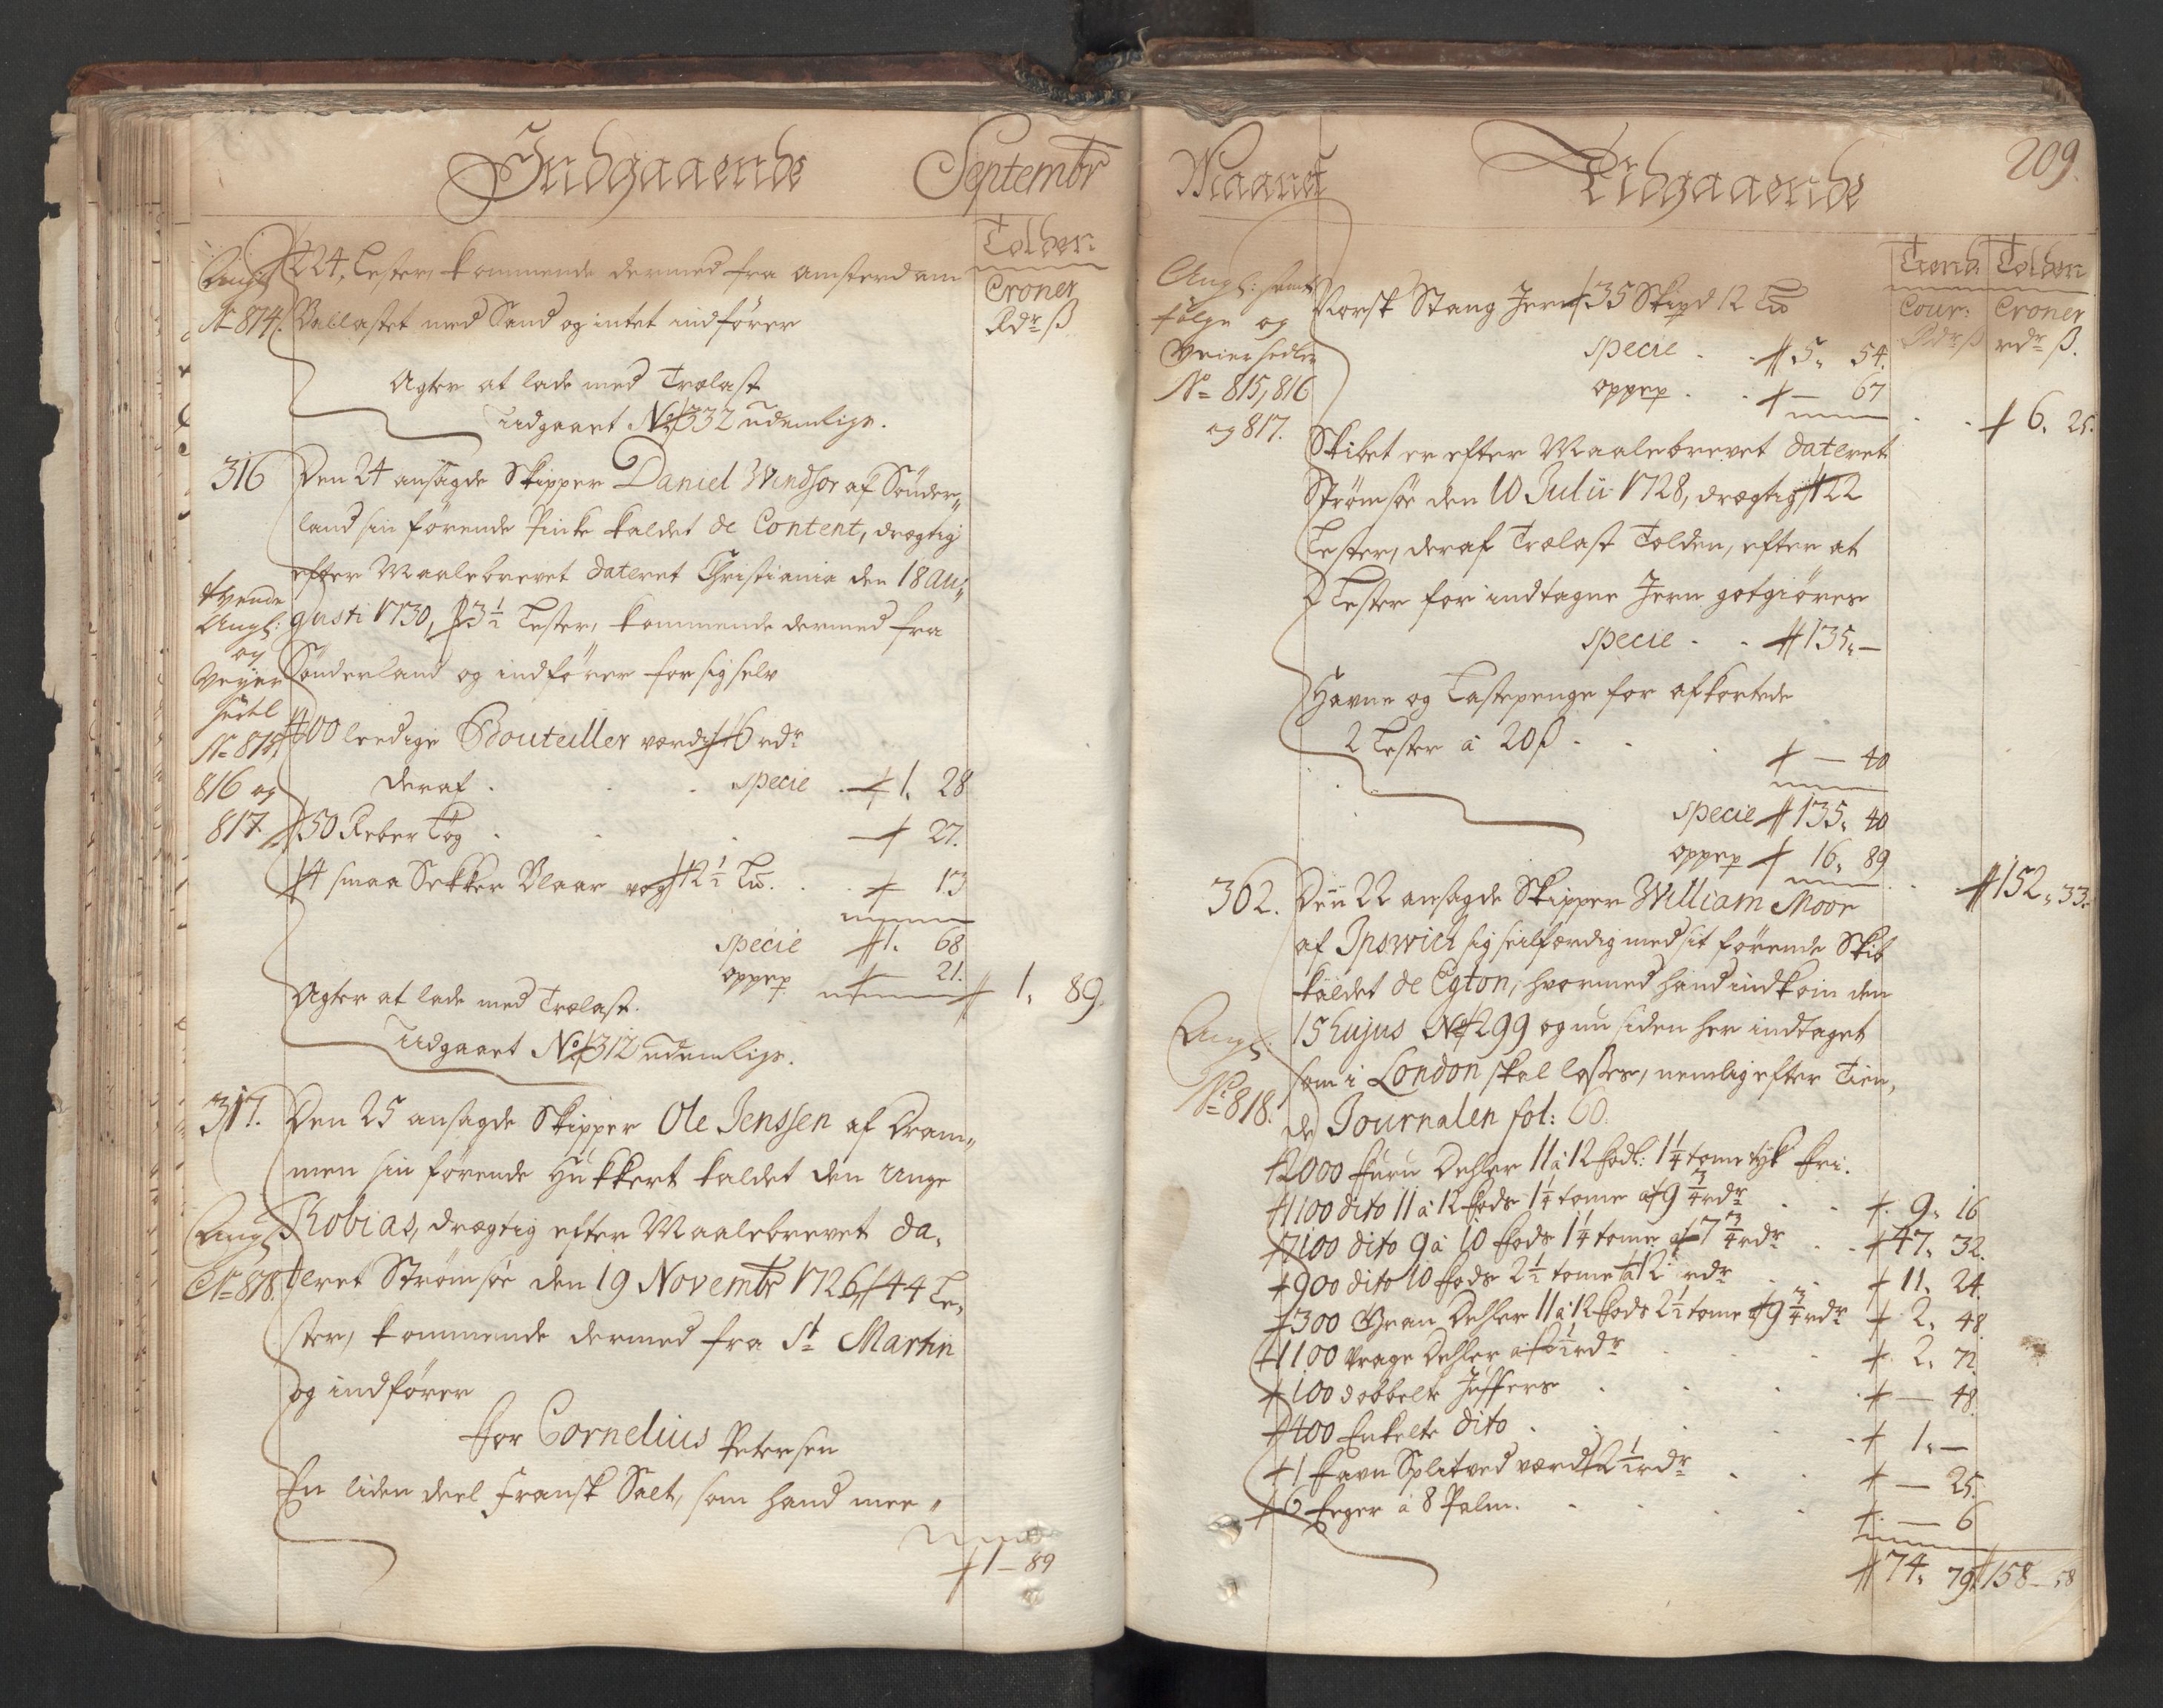 Indgaaende Septembr
Tolder:
Croner
Rdr ß
Angl:
No 814.
224, Lester, kommende dermed fra Amsterdam
Ballastet med Sand og intet indfører
Agter at lade med Trælast
Udgaaet No 332 udenligs.
316 Den 24 ansagde Skipper Daniel Windsor af Sønder„
land sin førende Pinke kaldet de Content, drægtig
efter Maalebrevet dateret Christiania den 18 Au„
gusti 1730, 83½ Lester, kommende dermed fra
Sønderland og indfører for sig selv
tvende
Angl:
og
Veyer
Sedl
No 815,
816 og
817.
400 leedige Bouteiller værdj 6 rdr
deraf . . . specie . 1, 28
50 Reber Tog . . . 27.
4 smaa Sekker Blaar vog 12½ Lu . . 13
specie 1. 68
oppep 21. 1, 89.
Agter at lade med Trælast.
Udgaaet No 312 udenligs.
317. Den 25 ansagde Skipper Ole Jenssen af Dram„
men sin førende Hukkert kaldet den Unge
Angl:
No 818.
Tobias, drægtig efter Maalebrevet da„
teret Strømsøe den 19 Novembr 1726, 44 Le„
ster, kommende dermed fra St Martin
og indfører
for Cornelius Petersen
En liden deel Fransk Salt, som hand mee„
1 – 89
Maanet Udgaaende 209.
Tiend Tolder
Cour: Croner
Rdr ß rdr ß.
Angl: samt
følge og
Veiersedler
No 815, 816
og 817.
Norsk Stang Jern 35 Skipd 12 Lu
specie . . 5, 54.
oppep . . — 67
. . 6, 25.
Skibet er efter Maalebrevet dateret
Strømsøe den 10 Julii 1728, drægtig 122
Lester, deraf Trælast Tolden, efter at
2 Lester for indtagne Jern gotgiøres
specie . . 135, —
Havne og Lastepenge for afkortede
2 Lester á 20 ß . . . — 40
specie 135, 40
oppep 16, 89
. 152, 33.
362. Den 22 ansagde Skipper William Moor
af Ipswich sig seilfærdig med sit førende Skib
kaldet de Egton, hvormed hand indkom den
Angl:
No 818.
15 hujus No 299 og nu siden her indtaget
som i London skal losses, nemlig efter Tien„
de Journalen fol: 60.
2000 furu Dehler 11 á 12 fods: 1¼ tome tyk fri.
1100 dito 11 á 12 fods 1¼ tome á 9¾ rdr . . 9, 16
7100 dito 9 á 10 fods 1¼ tome á 7¾ rdr . . 47, 32.
900 dito 10 fods 2½ tome á 12 rdr . . 11, 24.
300 Gran Dehler 11 á 12 fods 2½ tome á 9¾ rdr 2, 48
1100 Vrage Dehler á 2½ rdr . . 2, 72
100 dobbelte Juffers . . . . — 48.
400 Enkelte dito . . . . 1, —
1 favn Splitved værd 2½ rdr . . — 25.
6 Eeger á 8 Palm . . . — 6
74, 79 158 – 58